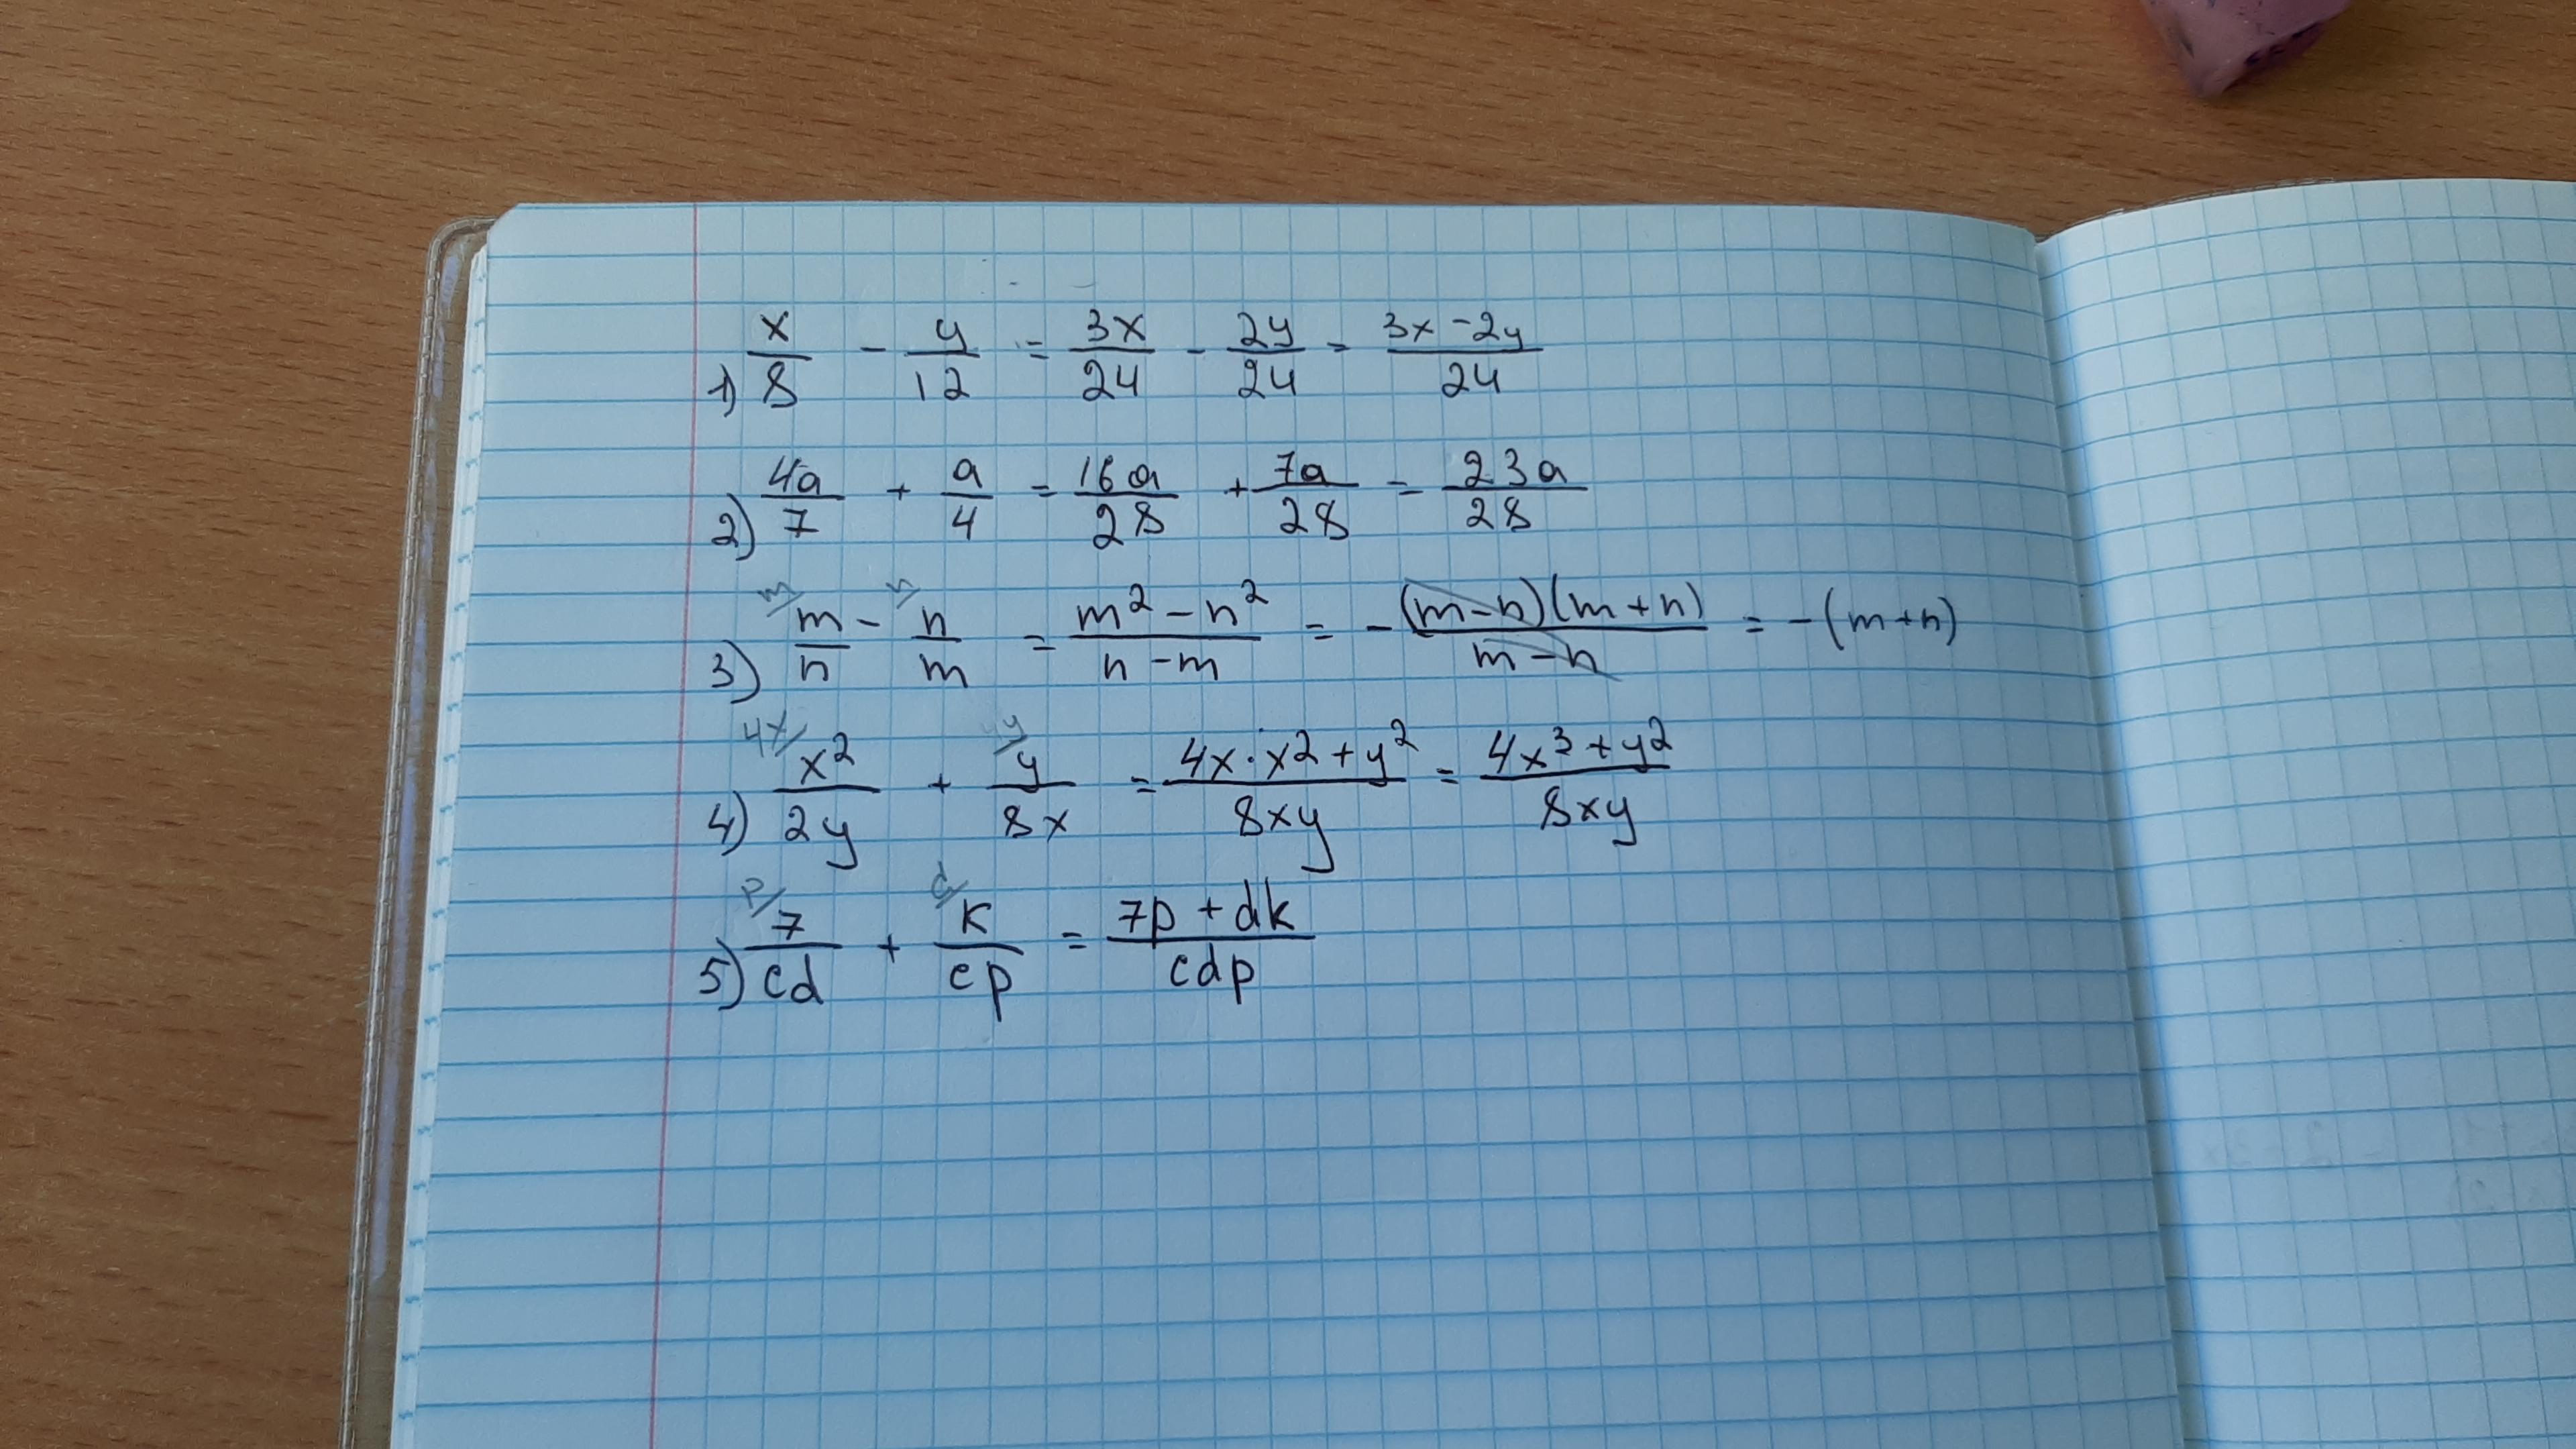 1) x/8 - y/12 = 3x/24 - 2y/24 = 3x-2y/24
2) 4a/7 + a/4 = 16a/28 + 7a/28 = 23a/28
3) m/ m/n - n/ n/m = m²-n²/n-m = -(m-n)(m+n)/m-n = -(m+n)
4) 4x/ x²/2y + y/ y/8x = 4x·x²+y²/8xy = 4x³+y²/8xy
5) p/ 7/cd + d/ k/cp = 7p+dk/cdp